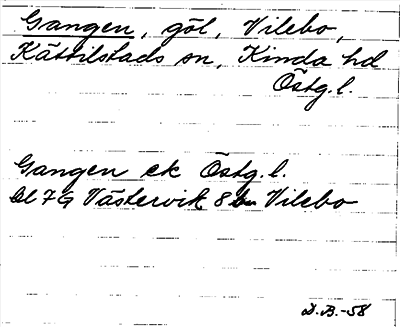 Gangen, göl, Vilebo,
Kättilstads sn, Kinda hd
Östg. l.
Gangen ek Östg. l.
Bl 7G Västervik 8 Vilebo
D.B.-58